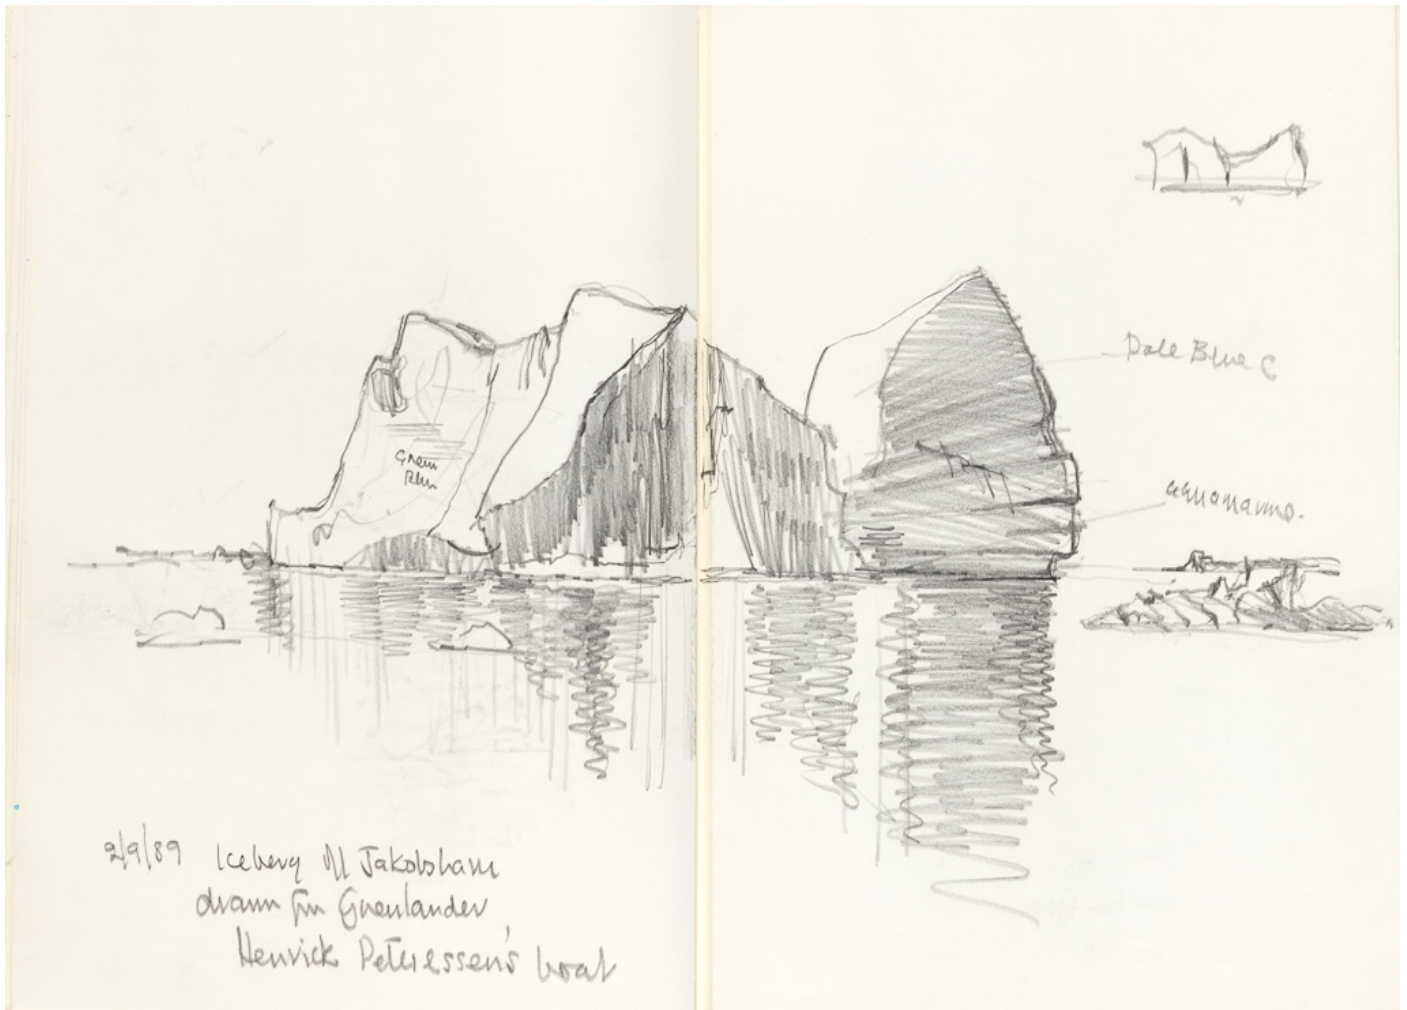 Pale Blue C
Green
Blue
aquamarine.
2/9/89 Iceberg off Jakobsham
drawn fm Greenlander
Henrick Peteressen's boat